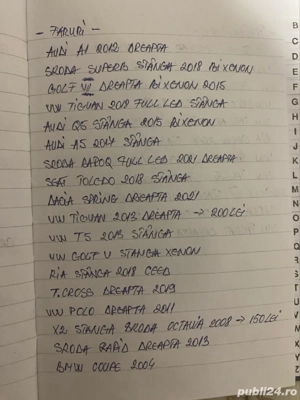 - FARURI -
AUDI A1 2012 DREAPTA
SKODA SUPERB STÂNGA 2018 BIXENON
GOLF VII DREAPTA BIXENON 2015
VW TIGUAN 2018 FULL LED STÂNGA
AUDI Q5 STÂNGA 2015 BIXENON
AUDI A5 2017 STÂNGA
SKODA KAROQ FULL LED 2021 DREAPTA
SEAT TOLEDO 2018 STÂNGA
DACIA SPRING DREAPTA 2021
VW TIGUAN 2013 DREAPTA → 200 LEI
VW T5 2013 STÂNGA
VW GOLF V STANGA XENON
KIA STÂNGA 2018 CEED
T.CROSS DREAPTA 2019
VW POLO DREAPTA 2011
X2 STANGA SKODA OCTAVIA 2008 → 150 LEI
SKODA RAPID DREAPTA 2013
BMW COUPE 2004
B
C
D
E
F
G
H
I
J
K
L
M
N
O
P
Q
R
S
T
U
V
W
X
Y
Z
publi24.ro